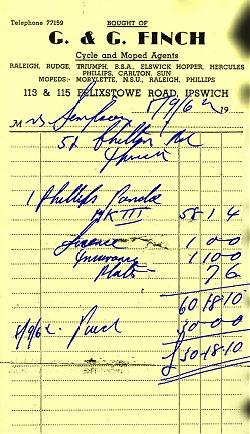 Telephone 77159 BOUGHT OF
G. & G. FINCH
Cycle and Moped Agents
RALEIGH, RUDGE, TRIUMPH, B.S.A., ELSWICK HOPPER, HERCULES
PHILLIPS, CARLTON, SUN
MOPEDS:- MOBYLETTE, N.S.U., RALEIGH, PHILLIPS
113 & 115 FELIXSTOWE ROAD, IPSWICH
8/9/62 19
Mrs Simpson
Phillips Rd
Ipswich
1 Phillips Panda
MK III 58 1 4
Licence 1 0 0
Insurance 1 10 0
Plates 7 6
60 18 10
8/9/62 Paid 30 0 0
£ 30 18 10